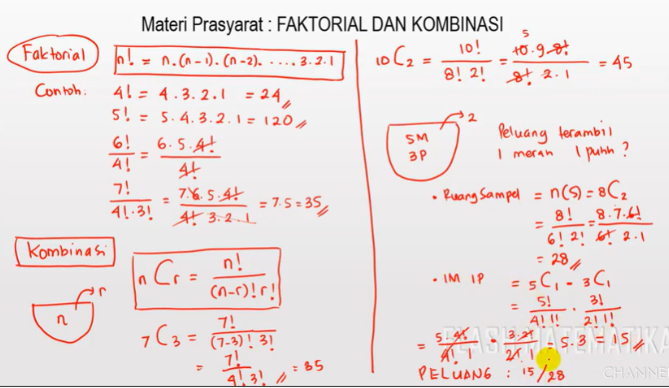 Materi Prasyarat : FAKTORIAL DAN KOMBINASI
Faktorial
n! = n.(n-1).(n-2). .... 3.2.1
Contoh:
4! = 4.3.2.1 = 24
5! = 5.4.3.2.1 = 120
6!/4! = 6.5.4!/4!
7!/4!.3! = 7.6.5.4!/4! 3.2.1 = 7.5 = 35
Kombinasi
r
n
nCr = n!/(n-r)! r!
7C3 = 7!/(7-3)! 3!
= 7!/4! 3! = 35
10C2 = 10!/8! 2! = 5 10.9.8!/8! 2.1 = 45
2
5M
3P
Peluang terambil
1 merah 1 putih ?
• Ruang Sampel = n(S) = 8C2
= 8!/6! 2! = 8.7.6!/6! 2.1
= 28
• 1M 1P = 5C1 . 3C1
= 5!/4! 1! . 3!/2! 1!
= 5.4!/4! 1 . 3.2!/2! 1 = 5.3 = 15
PELUANG : 15/28
FLASH MATEMATIKA
CHANNEL